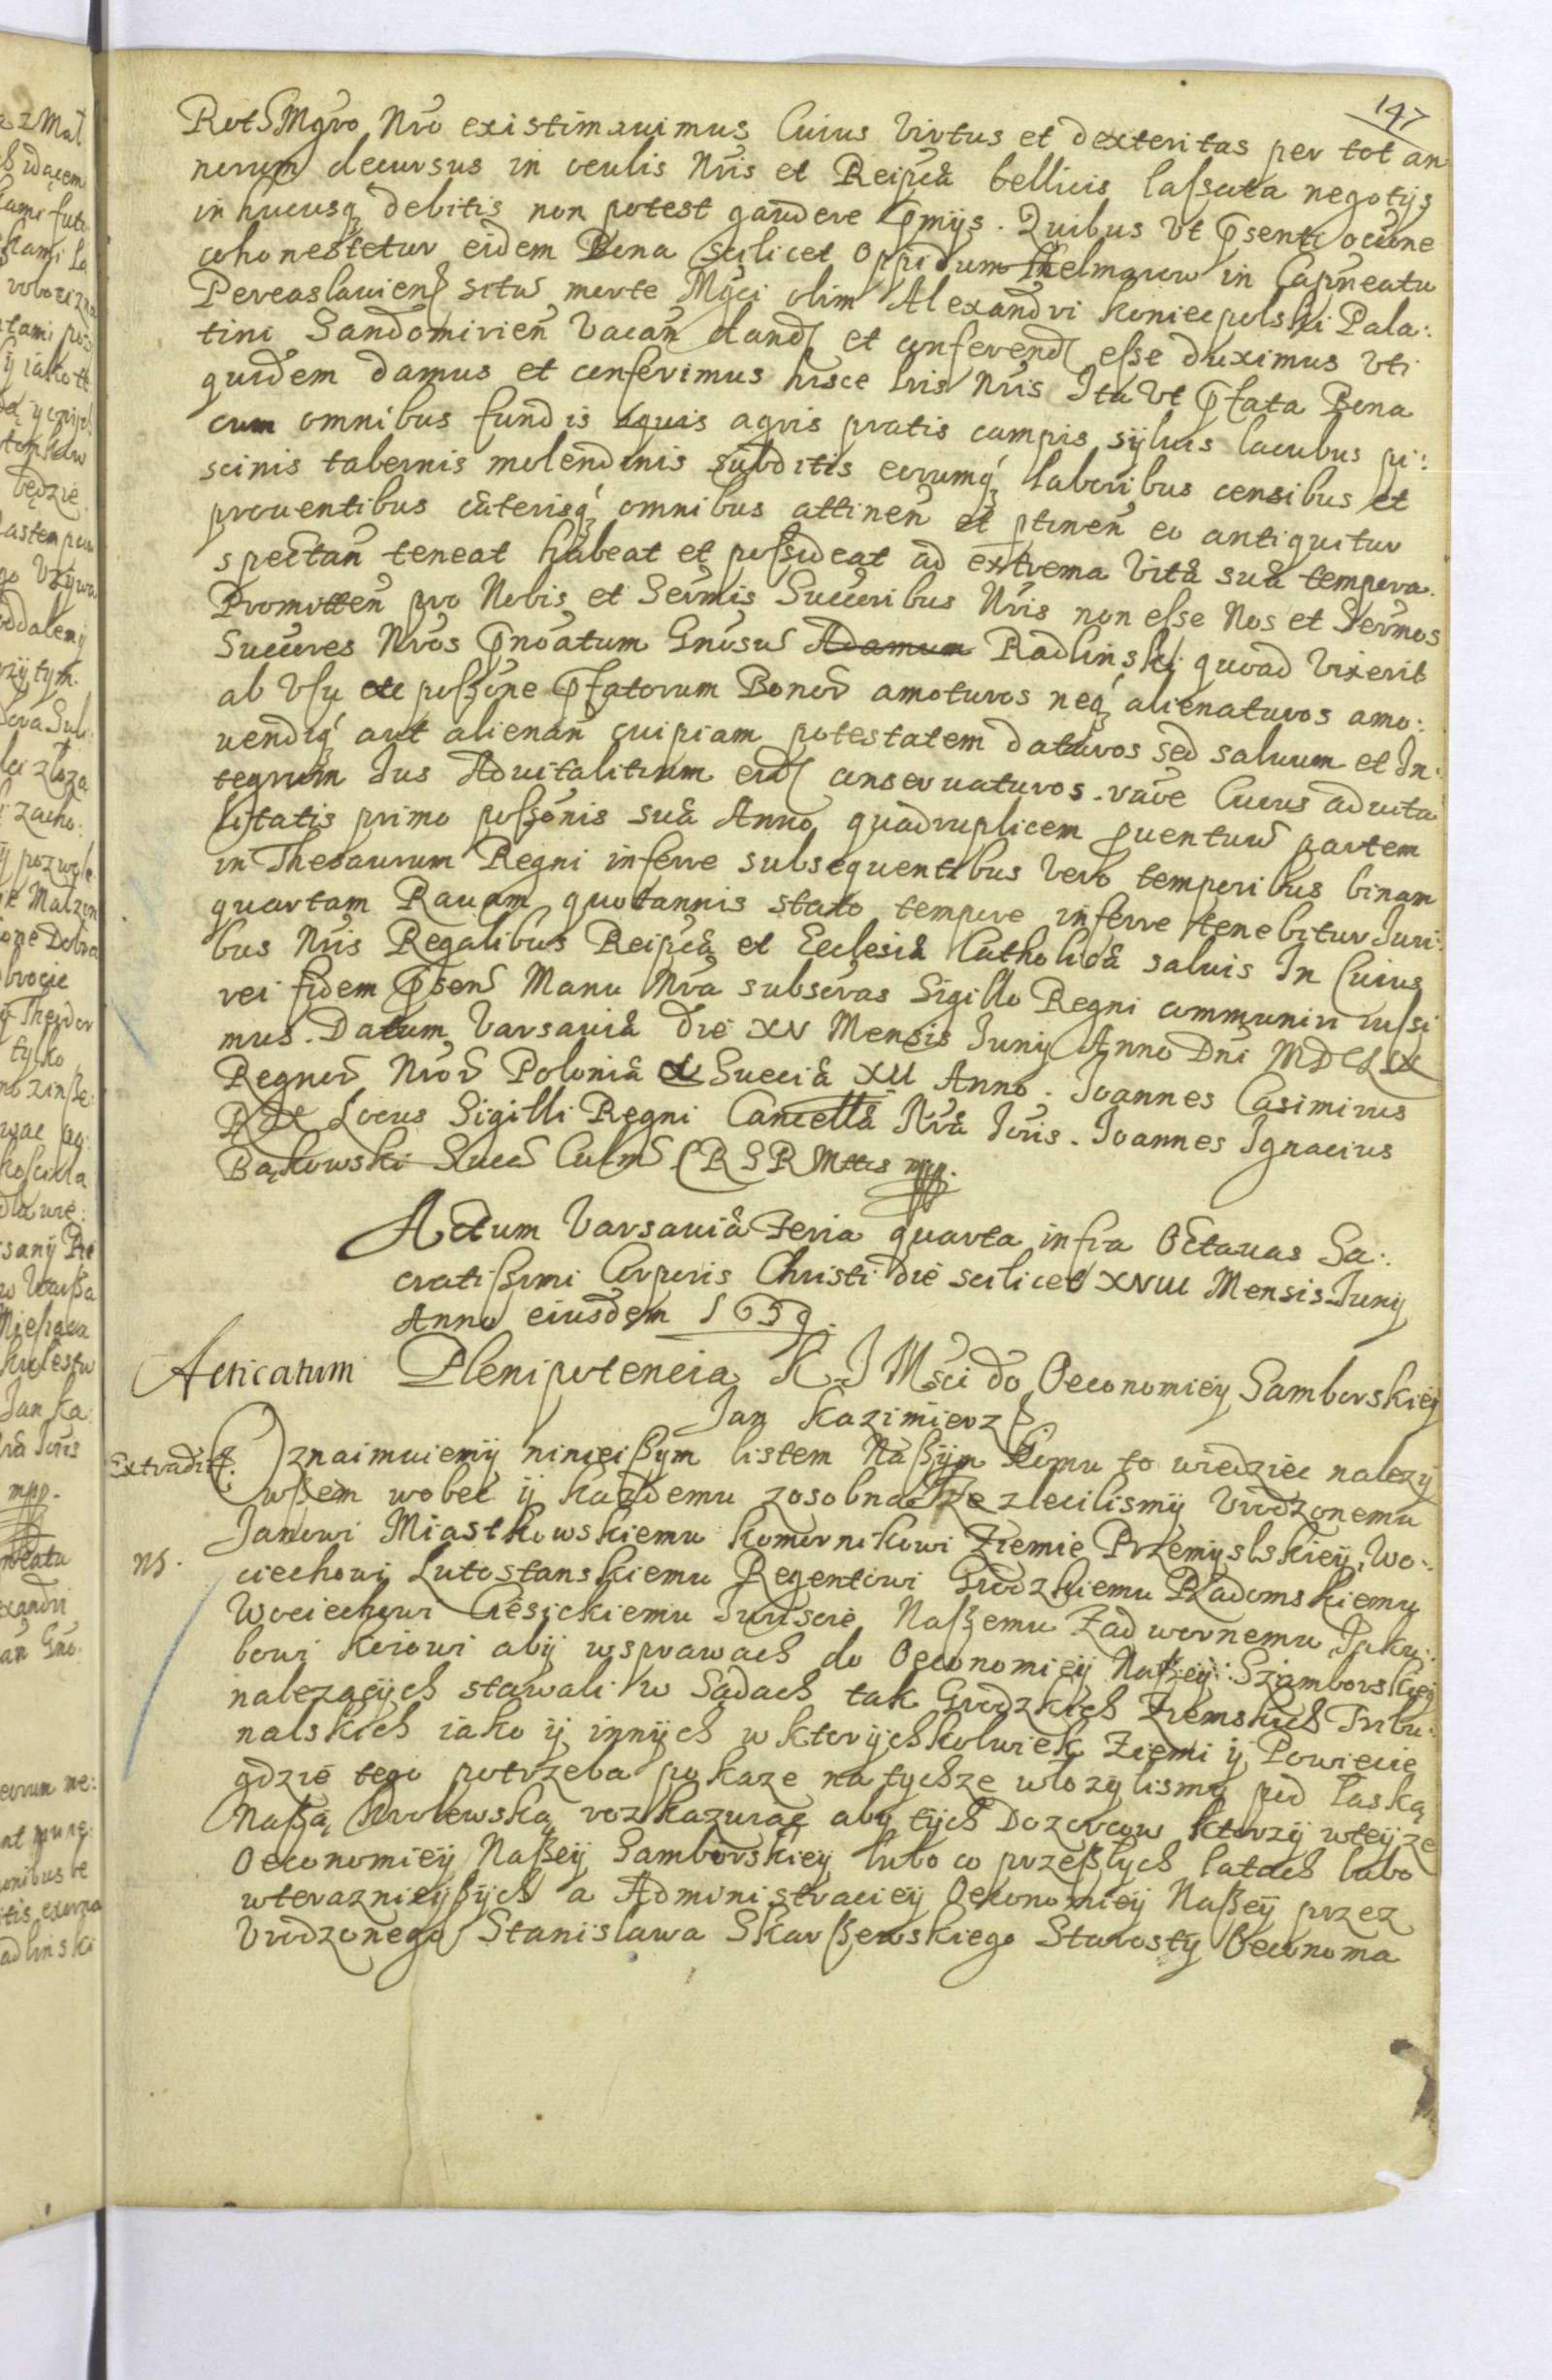 147
Rot S Mgro Nro existimauimus Cuius Virtus et dexteritas per tot an
norum decursus in oculis Nris et Reipcæ bellicis lassata negotijs
in hucusq debitis non potest gaudere pmijs. Quibus Vt psenti occione
cohonestetur eidem Bona scilicet Oppidum Chelmarow in Capneatu
Pereaslauien situ morte Mgci olim Alexandri Koniecpolski Pala:
tini Sandomirien Vacan dand et conferend esse duximus Vti
quidem damus et conferimus hisce lris Nris Ita Vt pfata Bona
cum omnibus fundis aquis agris pratis campis syluis lacubus pi:
scinis tabernis molendinis subditis eorumq laboribus censibus et
prouentibus cæterisq omnibus attinen et ptinen eo antiquitur
spectan teneat habeat et possideat ad extrema Vitæ suæ tempora.
Promitten pro Nobis et Sermis Succoribus Nris non esse Nos et Sermos
Succores Nros pnoatum Gnosu Adamum Radlinski quoad Vixerit
ab Vsu et possone pfatorum Bonor amoturos neq alienaturos amo:
uendiq aut alienan cuipiam potestatem daturos sed saluum et In:
tegrum Ius Aduitalitium eid conseruaturos. rãoe Cuius aduita
litatis primo possonis suæ Anno quadruplicem puentuu partem
in Thesaurum Regni inferre subsequentibus Vero temporibus binam
quartam Rauam quotannis stato tempore inferre tenebitur Iuri:
bus Nris Regalibus Reipcæ et Ecclesiæ Catholicæ saluis In Cuius
rei fidem psens Manu Nra subscras Sigillo Regni communiri iussi
mus. Datum Varsauiæ die XV Mensis Iunij Anno Dni MDCLIX
Regnor Nror Poloniæ et Sueciæ XII Anno. Ioannes Casimirus
Rex Locus Sigilli Regni Cancellæ Nræ Ioris. Ioannes Ignacius
Bąkowski Succ Culm S R S R Mttis mpp.
Actum Varsauiæ Feria quarta infra Octauas Sa:
cratissimi Corporis Christi die scilicet XVIII Mensis Iunij
Anno eiusdem 1659.
Acticatum Plenipotencia K J Msci do Oeconomiey Samborskiey
Jan Kazimierz
Extradit. Oznaimuiemy ninieißym listem Naßym Komu to wiedziec nalezy
wßem wobec y kazdemu zosobna Ize zlecilismy Vrodzonemu
Janowi Miastkowskiemu Komornikowi Ziemie Przemyslskiey, Wo:
NS. ciechowi Lutostanskiemu Regentowi Grodzkiemu Radomskiemu
Wociechowi Ciesickiemu Juriscie Naßemu Zadwornemu Jaku:
bowi Keiowi aby w sprawach do Oeconomiey Naßey Szamborskiey
nalezących stawali w Sądach tak Grodzkich Ziemskich Tribu:
nalskich iako y innych w ktorychkolwiek Ziemi y Powiecie
gdzie tego potrzeba pokaze na tychze włozylismy pod łaską
Naßą Krolewską rozkazuiąc aby tych Dozorcow ktorzy wteyze
Oeconomiey Naßey Samborskiey lubo co przeßlych latach lubo
wteraznieyßych a Administraciey Oekonomiey Naßey przez
Vrodzonego Stanislawa Skarßewskiego Starosty Oeconoma